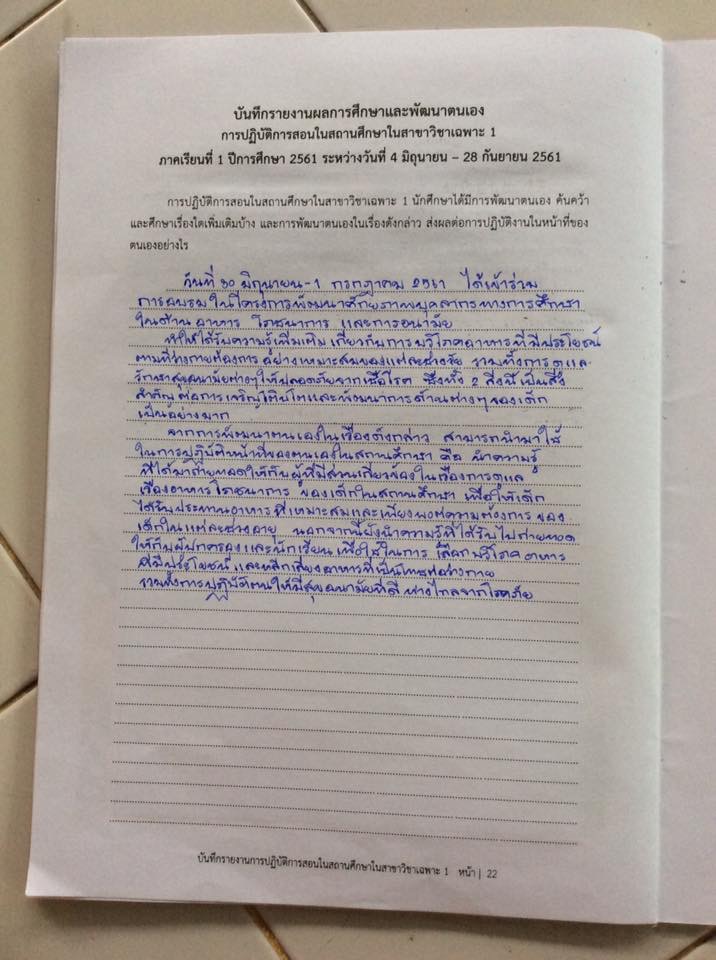 บันทึกรายงานผลการศึกษาและพัฒนาตนเอง
การปฏิบัติการสอนในสถานศึกษาในสาขาวิชาเฉพาะ 1
ภาคเรียนที่ 1 ปีการศึกษา 2561 ระหว่างวันที่ 4 มิถุนายน – 28 กันยายน 2561
การปฏิบัติการสอนในสถานศึกษาในสาขาวิชาเฉพาะ 1 นักศึกษาได้มีการพัฒนาตนเอง ค้นคว้า
และศึกษาเรื่องใดเพิ่มเติมบ้าง และการพัฒนาตนเองในเรื่องดังกล่าว ส่งผลต่อการปฏิบัติงานในหน้าที่ของ
ตนเองอย่างไร
วันที่ 30 มิถุนายน - 1 กรกฎาคม 2561 ได้เข้าร่วม
การอบรมในโครงการพัฒนาศักยภาพบุคลากรทางการศึกษา
ในด้าน อาหาร โภชนาการ และการอนามัย
ทำให้ได้รับความรู้เพิ่มเติม เกี่ยวกับการบริโภคอาหารที่มีประโยชน์
ตามที่ร่างกายต้องการ อย่างเหมาะสมของแต่ละช่วงวัย รวมทั้งการดูแล
รักษาสุขอนามัยต่างๆให้ปลอดภัยจากเชื้อโรค ซึ่งทั้ง 2 สิ่งนี้เป็นสิ่ง
สำคัญ ต่อการเจริญเติบโตและพัฒนาการด้านต่างๆของเด็ก
เป็นอย่างมาก
จากการพัฒนาตนเองในเรื่องดังกล่าว สามารถนำมาใช้
ในการปฏิบัติหน้าที่ของตนเองในสถานศึกษา คือ นำความรู้
ที่ได้มาถ่ายทอดให้กับผู้ที่มีส่วนเกี่ยวข้องในเรื่องการดูแล
เรื่องอาหารโภชนาการ ของเด็กในสถานศึกษา เพื่อให้เด็ก
ได้รับประทานอาหารที่เหมาะสมและเพียงพอต่อความต้องการของ
เด็กในแต่ละช่วงอายุ นอกจากนี้ยังนำความรู้ที่ได้รับไปถ่ายทอด
ให้กับผู้ปกครองและนักเรียน เพื่อใช้ในการ เลือกบริโภคอาหาร
ที่มีประโยชน์ และหลีกเลี่ยงอาหารที่เป็นโทษต่อร่างกาย
รวมทั้งการปฏิบัติตนให้มีสุขอนามัยที่ดี ห่างไกลจากโรคภัย
บันทึกรายงานการปฏิบัติการสอนในสถานศึกษาในสาขาวิชาเฉพาะ 1 หน้า | 22